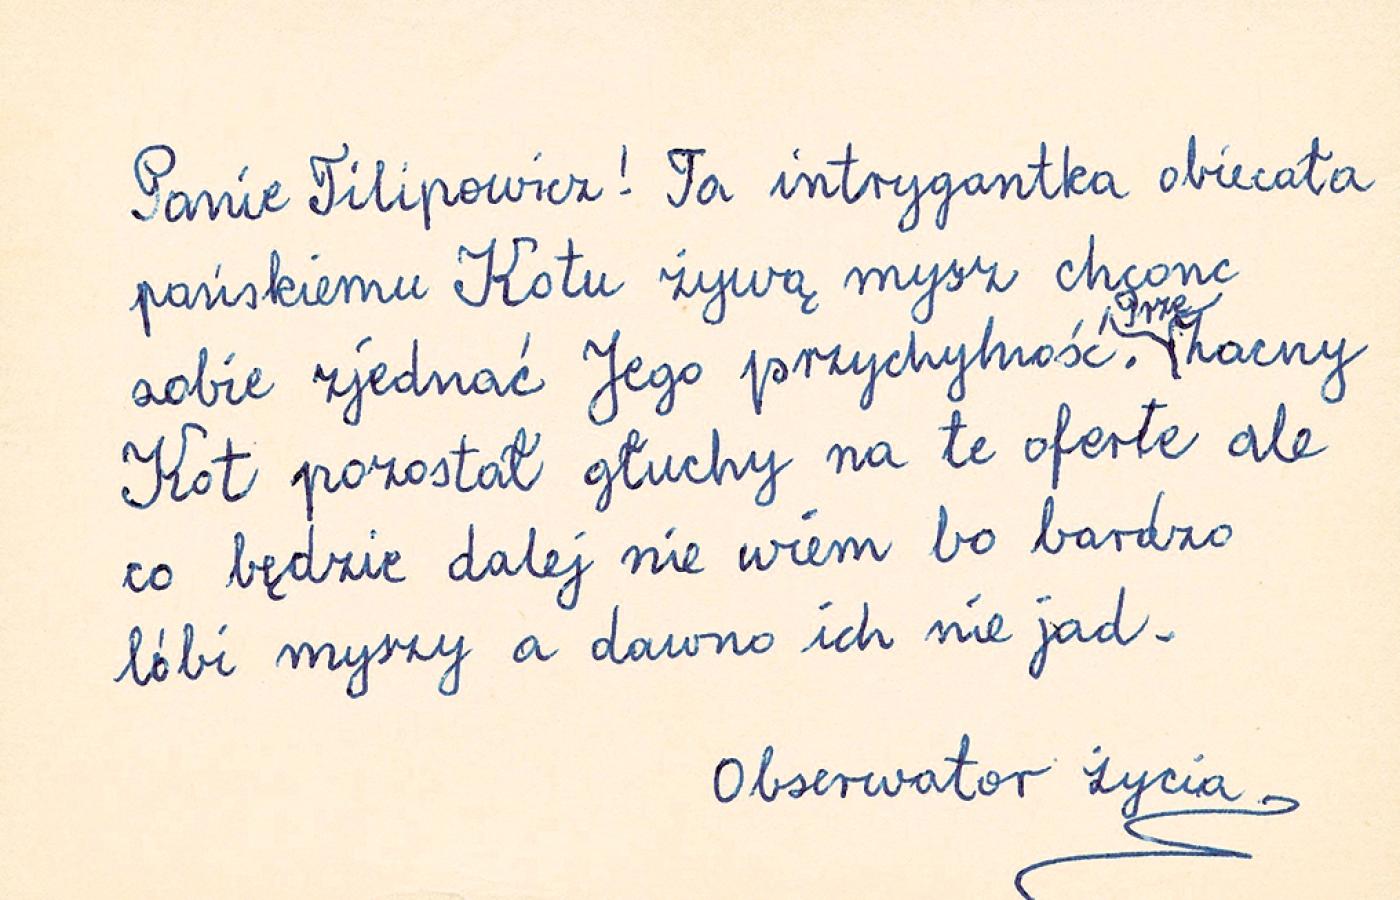 Panie Filipowicz! Ta intrygantka obiecała
pańskiemu Kotu żywą mysz chconc
sobie zjednać Jego przychylność. Przezacny
Kot pozostał głuchy na te oferte ale
co będzie dalej nie wiem bo bardzo
lóbi myszy a dawno ich nie jad.
Obserwator życia